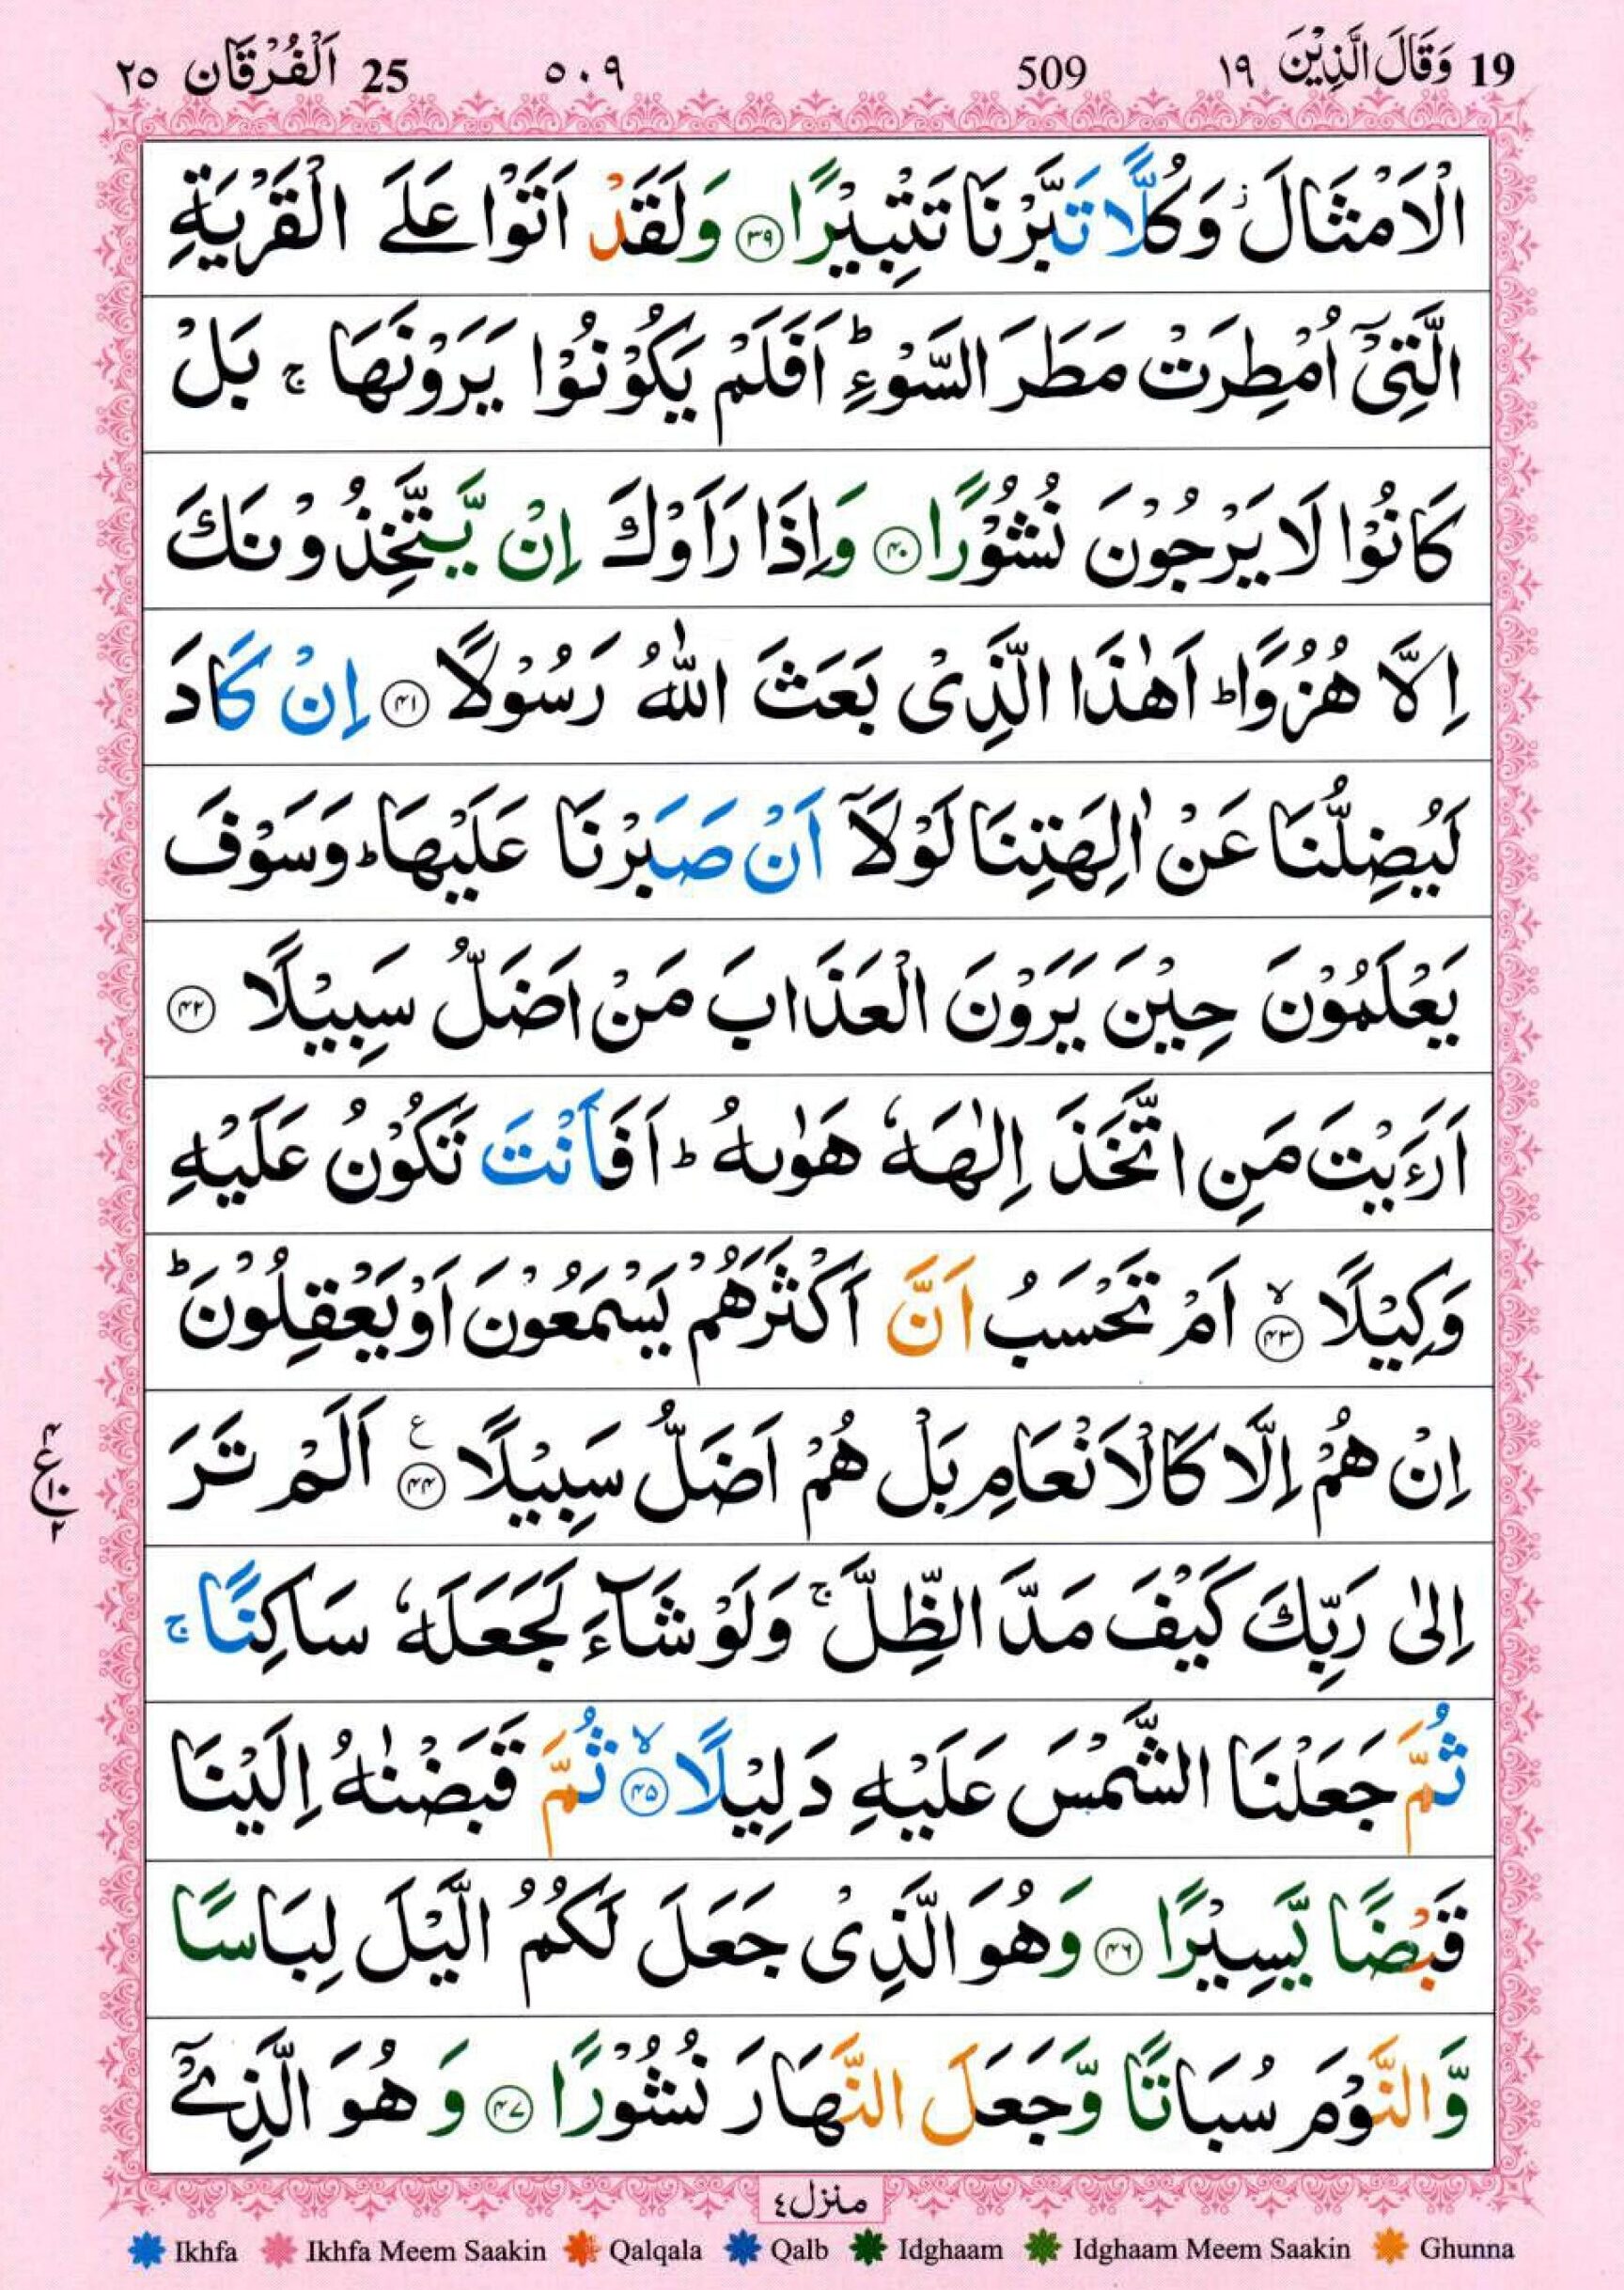 19 وَقَالَ الَّذِيْنَ ١٩ 509 ٥٠٩ 25 اَلْفُرْقَان ٢٥
الْاَمْثَالَ ز وَكُلًّا تَبَّرْنَا تَتْبِيْرًا ﴿٣٩﴾ وَلَقَدْ اَتَوْا عَلَے الْقَرْيَةِ
الَّتِيْٓ اُمْطِرَتْ مَطَرَ السَّوْءِ ؕ اَفَلَمْ يَكُوْنُوْا يَرَوْنَهَا ۚ بَلْ
كَانُوْا لَا يَرْجُوْنَ نُشُوْرًا ﴿٤٠﴾ وَاِذَا رَاَوْكَ اِنْ يَّتَّخِذُوْنَكَ
اِلَّا هُزُوًا ؕ اَهٰذَا الَّذِىْ بَعَثَ اللّٰهُ رَسُوْلًا ﴿٤١﴾ اِنْ كَادَ
لَيُضِلُّنَا عَنْ اٰلِهَتِنَا لَوْلَآ اَنْ صَبَرْنَا عَلَيْهَا ؕ وَسَوْفَ
يَعْلَمُوْنَ حِيْنَ يَرَوْنَ الْعَذَابَ مَنْ اَضَلُّ سَبِيْلًا ﴿٤٢﴾
اَرَءَيْتَ مَنِ اتَّخَذَ اِلٰهَهٗ هَوٰىهُ ؕ اَفَاَنْتَ تَكُوْنُ عَلَيْهِ
وَكِيْلًا ۙ﴿٤٣﴾ اَمْ تَحْسَبُ اَنَّ اَكْثَرَهُمْ يَسْمَعُوْنَ اَوْ يَعْقِلُوْنَ ؕ
اِنْ هُمْ اِلَّا كَالْاَنْعَامِ بَلْ هُمْ اَضَلُّ سَبِيْلًا ع ﴿٤٤﴾ اَلَمْ تَرَ
٤ ع ١٠ ٢
اِلٰى رَبِّكَ كَيْفَ مَدَّ الظِّلَّ ۚ وَلَوْ شَآءَ لَجَعَلَهٗ سَاكِنًا ۚ
ثُمَّ جَعَلْنَا الشَّمْسَ عَلَيْهِ دَلِيْلًا ۙ﴿٤٥﴾ ثُمَّ قَبَضْنٰهُ اِلَيْنَا
قَبْضًا يَّسِيْرًا ﴿٤٦﴾ وَهُوَ الَّذِىْ جَعَلَ لَكُمُ الَّيْلَ لِبَاسًا
وَّالنَّوْمَ سُبَاتًا وَّجَعَلَ النَّهَارَ نُشُوْرًا ﴿٤٧﴾ وَهُوَ الَّذِیْٓ
منزل ٤
Ikhfa Ikhfa Meem Saakin Qalqala Qalb Idghaam Idghaam Meem Saakin Ghunna